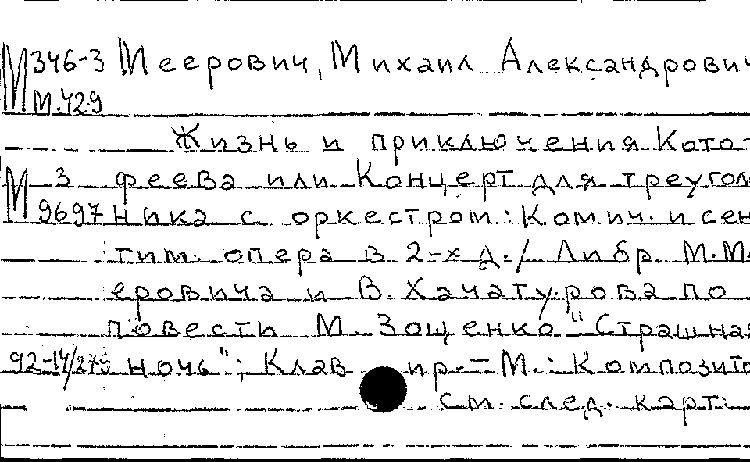 М 346-3 Меерович, Михаил Александрович
М.429
Жизнь и приключения Като-
М 3 феева или Концерт для треуголь
9697 ника с оркестром: Комич. и сен
тим. опера в 2-х д./ Либр. М.М.
еровича и В. Хачатурова по
повести М. Зощенко "Страшная
92-14/ ночь"; Клавир.-М.: Композито
см. след. карт.